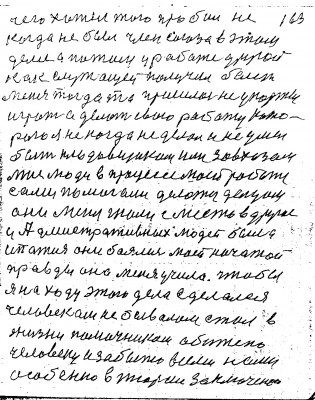 чего хотел того пробой не 163
когда не был член союза в этом
деле а потом у работе другой
как служащей получил билет
меня тогда та пришлось не упряжки
играть а делать свою работу кото-
рого я некогда не делал и не умел
быть кладовщиком или завхозам
мне люди в процессе моей работе
сами помогали делать
они меня гнали с место в другое
и Административных людей была
они боялис моей начатой
правды она меня учила. чтобы
я на ходу этого дела сделался
человекам не бывалом стал в
жизни помочником обижено
человеку и забыто всеми нами
особенно в тюрми заключено